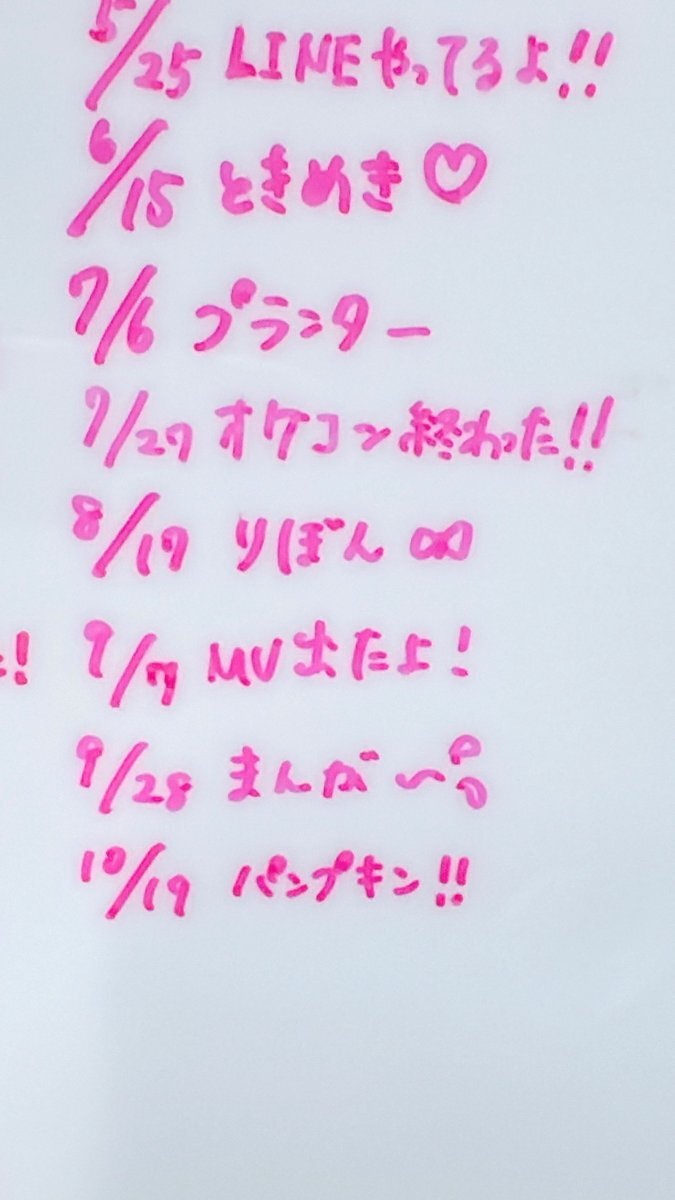 5/25 LINEやってるよ!!
6/15 ときめき♡
7/6 プランター
7/27 オケコン終わった!!
8/19 りぼん ∞
た!
9/7 MV出たよ!
9/28 まんが〜
10/19 パンプキン!!